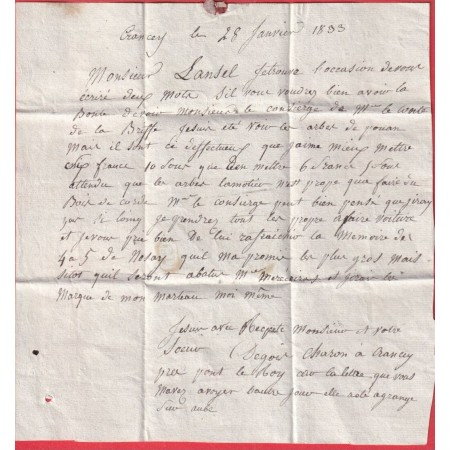 Crancey le 28 Janvier 1833
Monsieur Lansel Jetrouve l'occasion devous
écriré deux mots sil vous voudrez bien avoir la
Bonté dévoir monsieur le consierge de Mr le Conte
de la Briffe Jesuis été voir les arbes de pouan
Mais il sont si défectueu que jaime mieux mettre
six france 10 sous que den mettre 6 france
attendu que les arbes la moitier nest prope que faire du
Bois de corde Mr le consierge peut bien pensé que jiray
pas si loing je prendrez tout les propre a faire voiture
et jevous prie bien De lui rafraichir la Memoire de
4 a 5 de Nosay quil ma promie les plus gros Mais
sitot quil seront abatus Mr Merecevras et jerai les
Marque de mon marteau moi même
Jesuis avec Respecte Monsieur et votre
Soeur Segois Charon à Crancey
pres pont le Roy car la lettre que vous
Mavez avoyer lautre jour elle a été a grange
sur aube